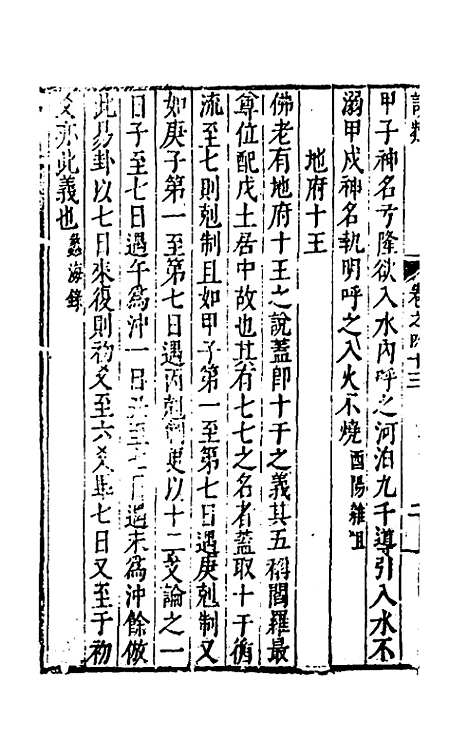 卷之四十三
甲子神名弓隆欲入水內呼之河泊九千導引入水不
溺甲戌神名執明呼之入火不燒酉陽雜俎
地府十王
佛老有地府十王之說蓋即十干之義其五稱閻羅最
尊位配戊土居中故也其有七七之名者蓋取十干循
流至七則剋制且如甲子第一至第七日遇庚剋制又
如庚子第一至第七日遇丙剋制更以十二支論之一
日子至七日遇午為沖一日丑至七日遇未為沖餘倣
此易卦以七日來復則初爻至六爻畢七日又至于初
爻亦此義也蠡海錄